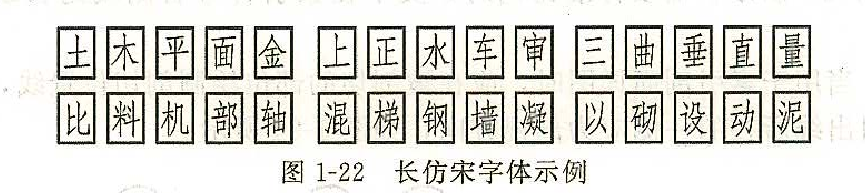 土木平面金 上正水车审 三曲垂直量
比料机部轴 混梯钢墙凝 以砌设动泥
图 1-22 长仿宋字体示例